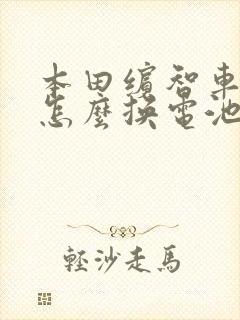 本田繽智車
怎麼換電池
輕沙走馬